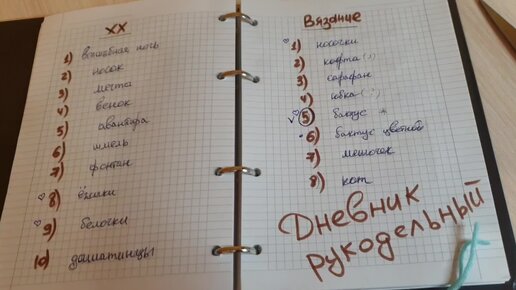 XX
1) волшебная ночь
2) носок
3) мечта
4) венок
5) авантюра
6) шмель
7) фонтан
8) ёжики
9) белочки
10) далматинцы
Вязание
1) носочки
2) кофта (?)
3) сарафан
4) юбка (?)
5) бактус *
6) бактус цветной
7) мешочек
8) кот
Дневник
рукодельный